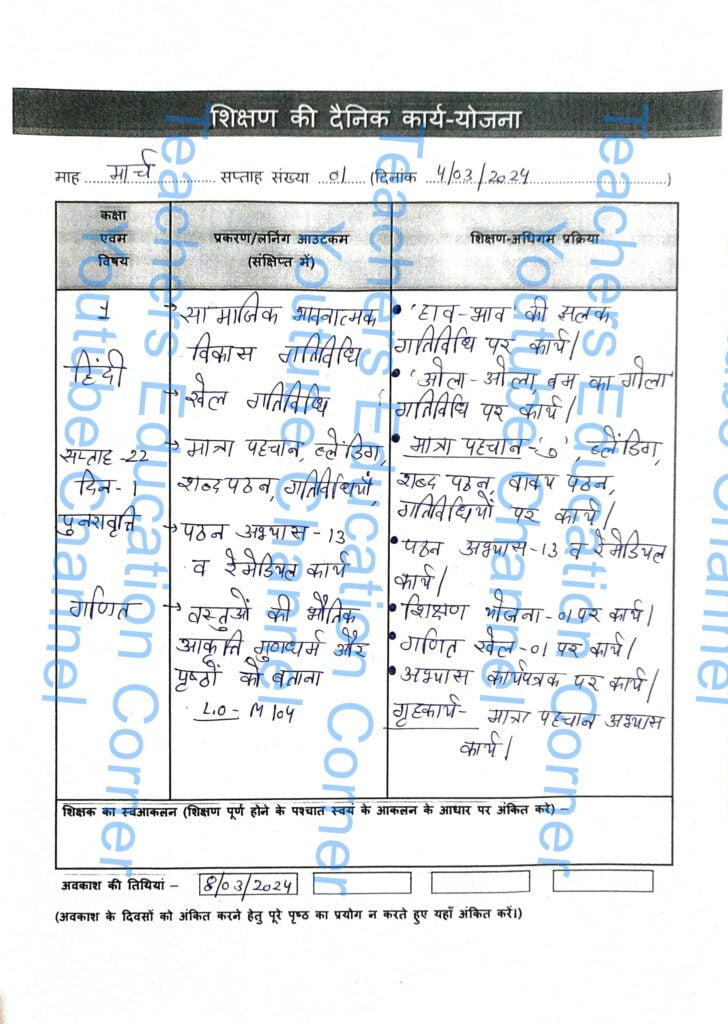 शिक्षण की दैनिक कार्य-योजना
माह मार्च सप्ताह संख्या 01 (दिनांक 4/03/2024)
कक्षा एवम विषय
प्रकरण/लर्निंग आउटकम (संक्षिप्त में)
शिक्षण-अधिगम प्रक्रिया
1
हिंदी
सप्ताह-22
दिन-1
पुनरावृत्ति
→ सामाजिक भावनात्मक
विकास गतिविधि
→ खेल गतिविधि
→ मात्रा पहचान, ब्लेंडिंग,
शब्द पठन, गतिविधियाँ,
→ पठन अभ्यास-13
व रेमेडियल कार्य
• 'हाव-भाव' की झलक
गतिविधि पर कार्य।
• 'ओला-ओला, बम का गोला'
गतिविधि पर कार्य।
• मात्रा पहचान- ब्लेंडिंग,
शब्द पठन, वाक्य पठन,
गतिविधियों पर कार्य।
• पठन अभ्यास-13 व रेमेडियल
कार्य।
गणित
→ वस्तुओं की भौतिक
आकृति गुणधर्म और
पृष्ठों को बताना
L.O - M 104
• शिक्षण योजना-01 पर कार्य।
• गणित खेल-01 पर कार्य।
• अभ्यास कार्यपत्रक पर कार्य।
गृहकार्य- मात्रा पहचान अभ्यास
कार्य।
शिक्षक का स्वआकलन (शिक्षण पूर्ण होने के पश्चात स्वयं के आकलन के आधार पर अंकित करे) –
अवकाश की तिथियां – 8/03/2024
(अवकाश के दिवसों को अंकित करने हेतु पूरे पृष्ठ का प्रयोग न करते हुए यहाँ अंकित करें।)
Teachers Education Corner
Youtube Channel
Teachers Education Corner
Youtube Channel
Teachers Education Corner
Youtube Channel